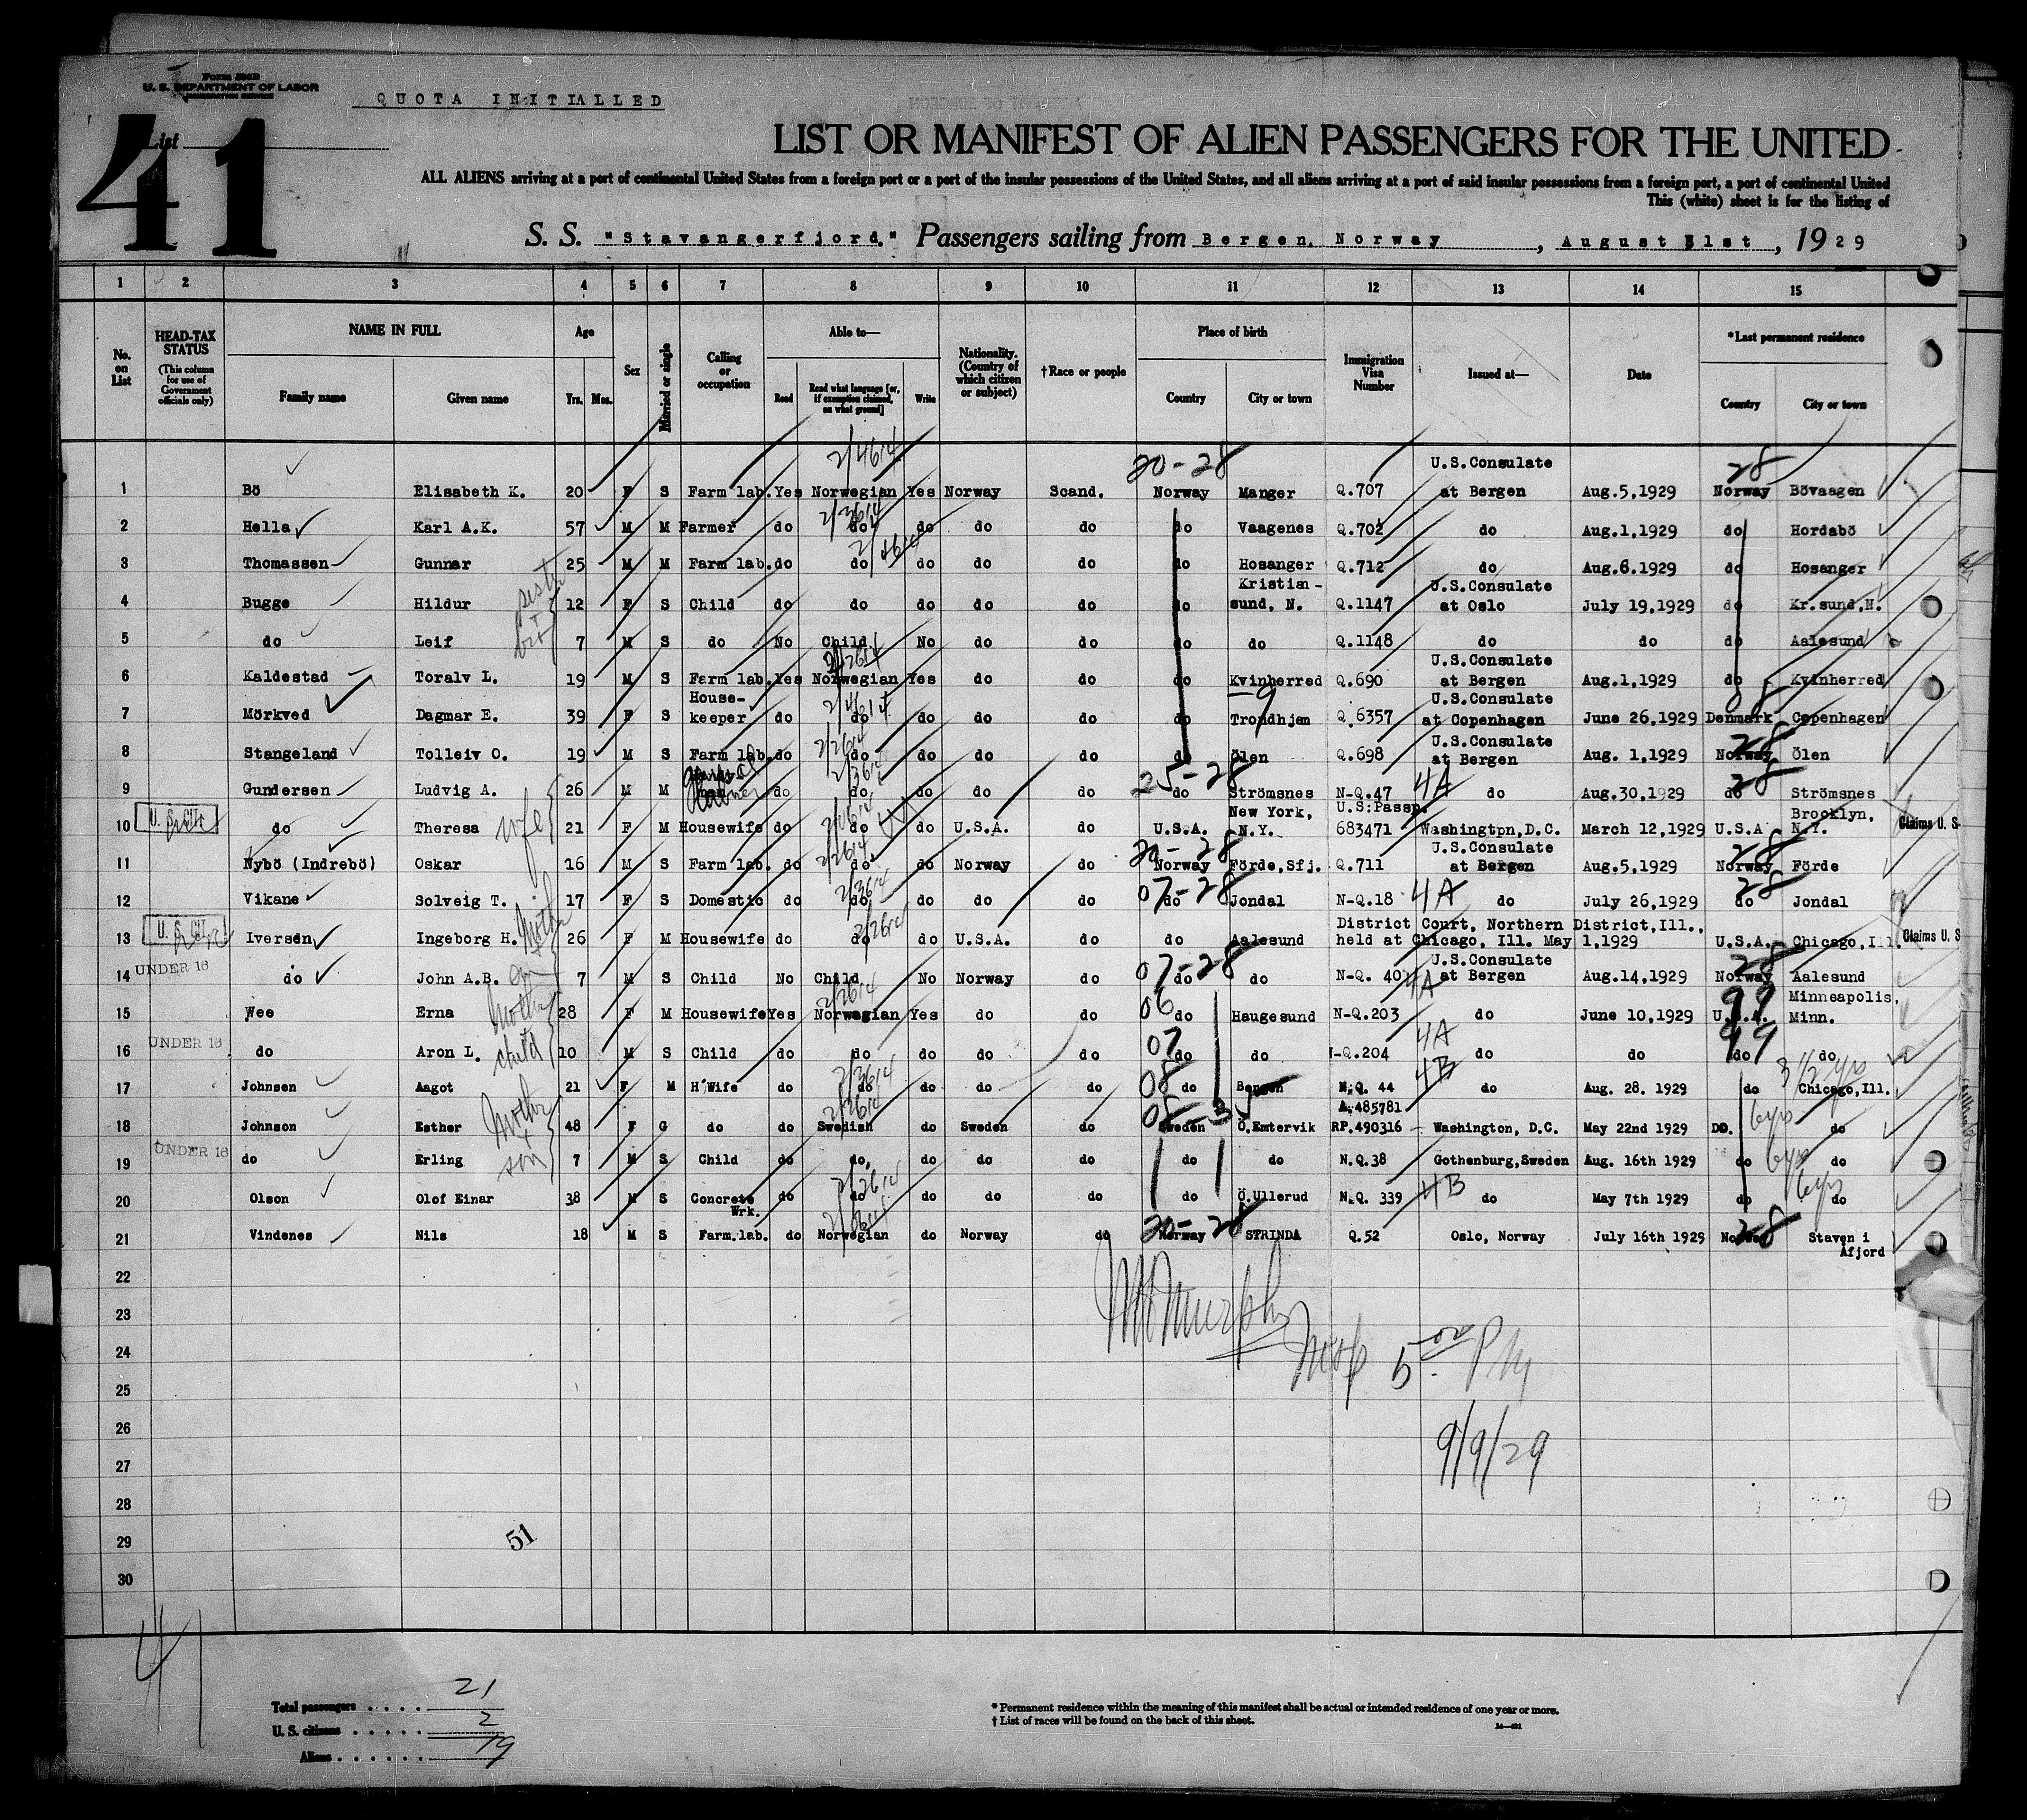 Form 500B
U. S. DEPARTMENT OF LABOR
IMMIGRATION SERVICE
QUOTA INITIALLED
List 41
LIST OR MANIFEST OF ALIEN PASSENGERS FOR THE UNITED
ALL ALIENS arriving at a port of continental United States from a foreign port or a port of the insular possessions of the United States, and all aliens arriving at a port of said insular possessions from a foreign port, a port of continental United
This (white) sheet is for the listing of
S. S. "Stavangerfjord." Passengers sailing from Bergen, Norway, August 31st, 1929
1 2 3 4 5 6 7 8 9 10 11 12 13 14 15
No. on List
HEAD-TAX STATUS (This column for use of Government officials only)
NAME IN FULL Family name Given name
Age Yrs. Mos.
Sex
Married or single
Calling or occupation
Able to— Read Read what language [or, if exemption claimed, on what ground] Write
Nationality. (Country of which citizen or subject)
†Race or people
Place of birth Country City or town
Immigration Visa Number
Issued at—
Date
*Last permanent residence Country City or town
2/4614 20-28 28
1 Bö Elisabeth K. 20 F S Farm lab. Yes Norwegian Yes Norway Scand. Norway Manger Q.707 U.S.Consulate at Bergen Aug.5,1929 Norway Bövaagen
2 Hella Karl A.K. 57 M M Farmer do do do do do do Vaagenes Q.702 do Aug.1,1929 do Hordabö
3 Thomassen Gunnar 25 M M Farm lab. do do do do do do Hosanger Q.712 do Aug.6.1929 do Hosanger
4 Bugge Hildur 12 F S Child do do do do do do Kristian-sund, N. Q.1147 U.S.Consulate at Oslo July 19,1929 do Kr.sund,N.
sister + bro
5 do Leif 7 M S do No Child No do do do do Q.1148 do do do Aalesund
6 Kaldestad Toralv L. 19 M S Farm lab. Yes Norwegian Yes do do do Kvinherred Q.690 U.S.Consulate at Bergen Aug.1,1929 do Kvinherred
7 Mörkved Dagmar E. 39 F S House-keeper do do do do do do Trondhjem Q.6357 U.S.Consulate at Copenhagen June 26,1929 Denmark Copenhagen
8 Stangeland Tolleiv O. 19 M S Farm lab. do do do do do do Ölen Q.698 U.S.Consulate at Bergen Aug. 1,1929 Norway Ölen
25-28 4A 28
9 Gundersen Ludvig A. 26 M M do do do do do do Strömsnes N-Q.47 do Aug.30,1929 do Strömsnes
wife
U. S. CIT.
10 do Theresa 21 F M Housewife do do do U.S.A. do U.S.A. New York, N.Y. U.S.Passp. 683471 Washingtpn,D.C. March 12,1929 U.S.A Brooklyn, N.Y. Claims U. S
20-28 28
11 Nybö (Indrebö) Oskar 16 M S Farm lab. do do do Norway do Norway Förde,Sfj. Q.711 U.S.Consulate at Bergen Aug.5,1929 Norway Förde
07-28 4A 28
12 Vikane Solveig T. 17 F S Domestic do do do do do do Jondal N-Q.18 do July 26,1929 do Jondal
U. S. CIT.
13 Iversen Ingeborg H. 26 F M Housewife do do do U.S.A. do do Aalesund District Court, Northern District,Ill., held at Chicago, Ill. May 1,1929 U.S.A. Chicago,Ill. Claims U. S
Mother + son
UNDER 16
07-28 4A 28
14 do John A.B. 7 M S Child No Child No Norway do do do N-Q. 40 U.S.Consulate at Bergen Aug.14,1929 Norway Aalesund
06 99
15 Wee Erna 28 F M Housewife Yes Norwegian Yes do do do Haugesund N-Q.203 do June 10,1929 U.S.A. Minneapolis, Minn.
Mother + child
UNDER 16
07 4A 99
16 do Aron L. 10 M S Child do do do do do do do N-Q.204 do do do do
08 4B 3 1/2 yrs
17 Johnsen Aagot 21 F M H'Wife do do do do do do Bergen N.Q. 44 do Aug. 28. 1929 do Chicago,Ill.
08-3 6yrs
18 Johnson Esther 48 F G do do Swedish do Sweden do Sweden Ö.Emtervik A.485781 RP.490316 Washington, D.C. May 22nd 1929 DO. do
Mother + son
UNDER 16
6yrs
19 do Erling 7 M S Child do do, do do do do do N.Q.38 Gothenburg,Sweden Aug. 16th 1929 do do
4B 6yrs
20 Olson Olof Einar 38 M S Concrete Wrk. do do do do do do Ö.Ullerud N.Q. 339 do May 7th 1929 do do
20-28 28
21 Vindenes Nils 18 M S Farm.lab. do Norwegian do Norway do Norway STRINDA Q.52 Oslo, Norway July 16th 1929 Norway Staven i Afjord
22
23
24
25
26
27
28
29
30
Murphy
5 00 PM
9/9/29
51
41
Total passengers . . . . 21
U. S. citizens . . . . . 2
Aliens . . . . . . 19
* Permanent residence within the meaning of this manifest shall be actual or intended residence of one year or more.
† List of races will be found on the back of this sheet.